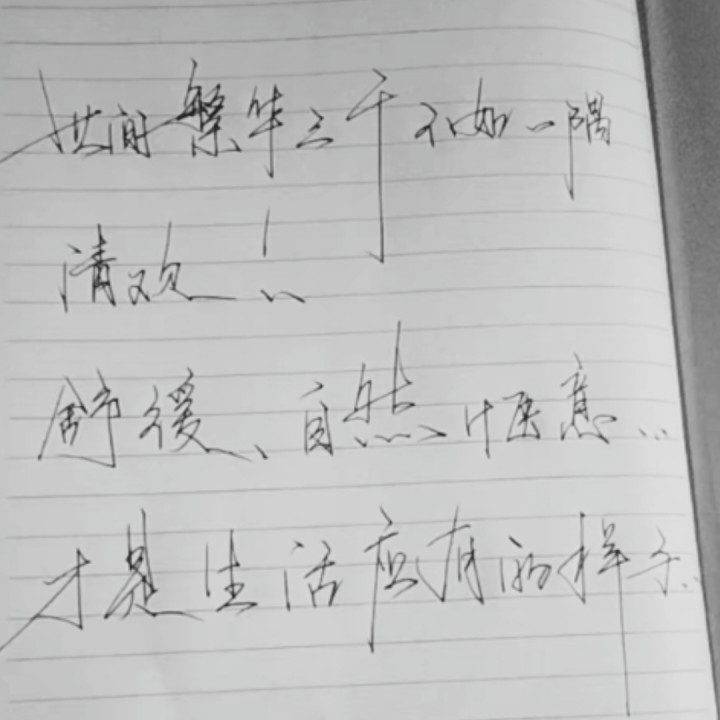 世间繁华三千不如一隅
清欢!..
舒缓、自然、惬意...
才是生活应有的样子..